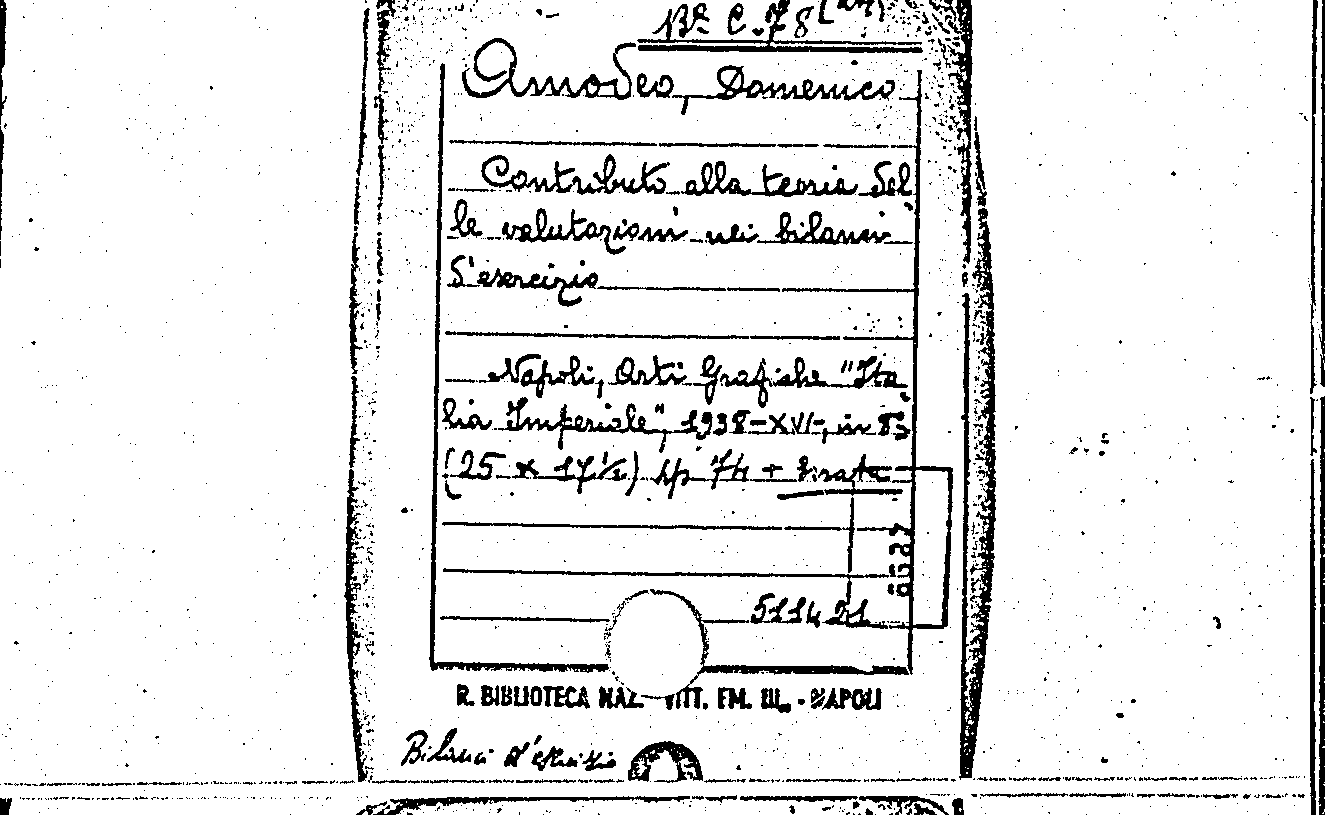 Bª C. 78
Amodeo, Domenico
Contributo alla teoria del
le valutazioni nei bilanci
d'esercizio
Napoli, Arti Grafiche "Ita
lia Imperiale", 1938-XVI-, in 8°
(25 x 17 ½) pp 74 + errata
511421
R. BIBLIOTECA NAZ. VITT. EM. III. - NAPOLI
Bilanci d'esercizio